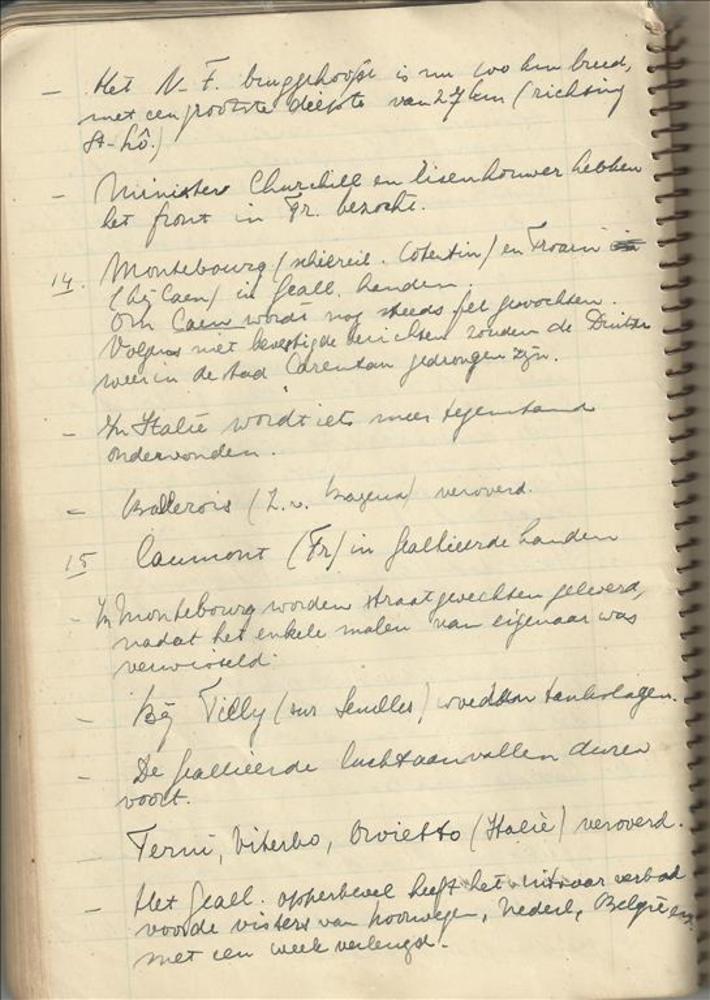 - Het N-F. bruggehoofd is nu 100 km breed,
met een grootste diepte van 27 km (richting
St-Lô.)
- Minister Churchill en Eisenhouwer hebben
het front in Fr. bezocht.
14. Montebourg (schiereil. Cotentin) en Troarn
(bij Caen) in Geall. handen.
Om Caen wordt nog steeds fel gevochten.
Volgens niet bevestigde berichten zouden de Duitse
weer in de stad Carentan gedrongen zijn.
- In Italië wordt iets meer tegenstand
ondervonden.
- Ballerois (Z. v. Bayeux) veroverd.
15 Caumont (Fr) in Geallieerde handen
- In Montebourg worden straatgevechten geleverd,
nadat het enkele malen van eigenaar was
verwisseld.
- Bij Tilly (sur Seulles) woedden tankslagen.
- De Geallieerde luchtaanvallen duren
voort.
- Terni, Viterbo, Orvietto (Italië) veroverd.
- Het Geall. opperbevel heeft het uitvaar verbod
voor de vissers van Noorwegen, Nederl, België enz
met een week verlengd.